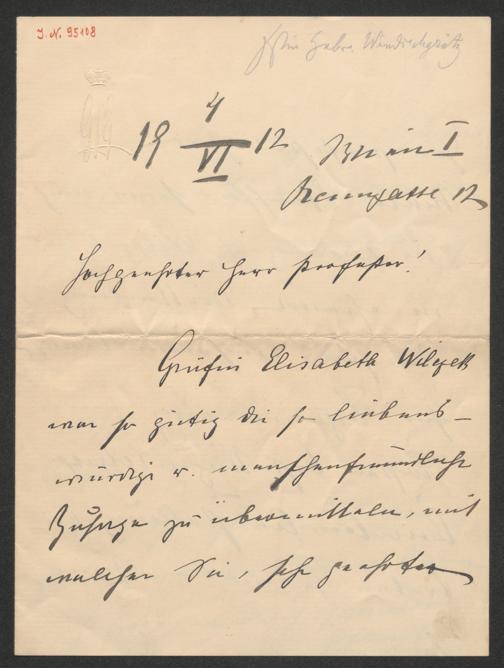 J. N. 95108
Fstin Gabr. Windischgrätz
19 4/VI 12 Wien I
Renngasse 12
Hochgeehrter Herr Professor!
Gräfin Elisabeth Wilczek
war so gütig die so liebens-
würdige u. menschenfreundliche
Zusage zu übermitteln, mit
welcher Sie, sehr geehrter